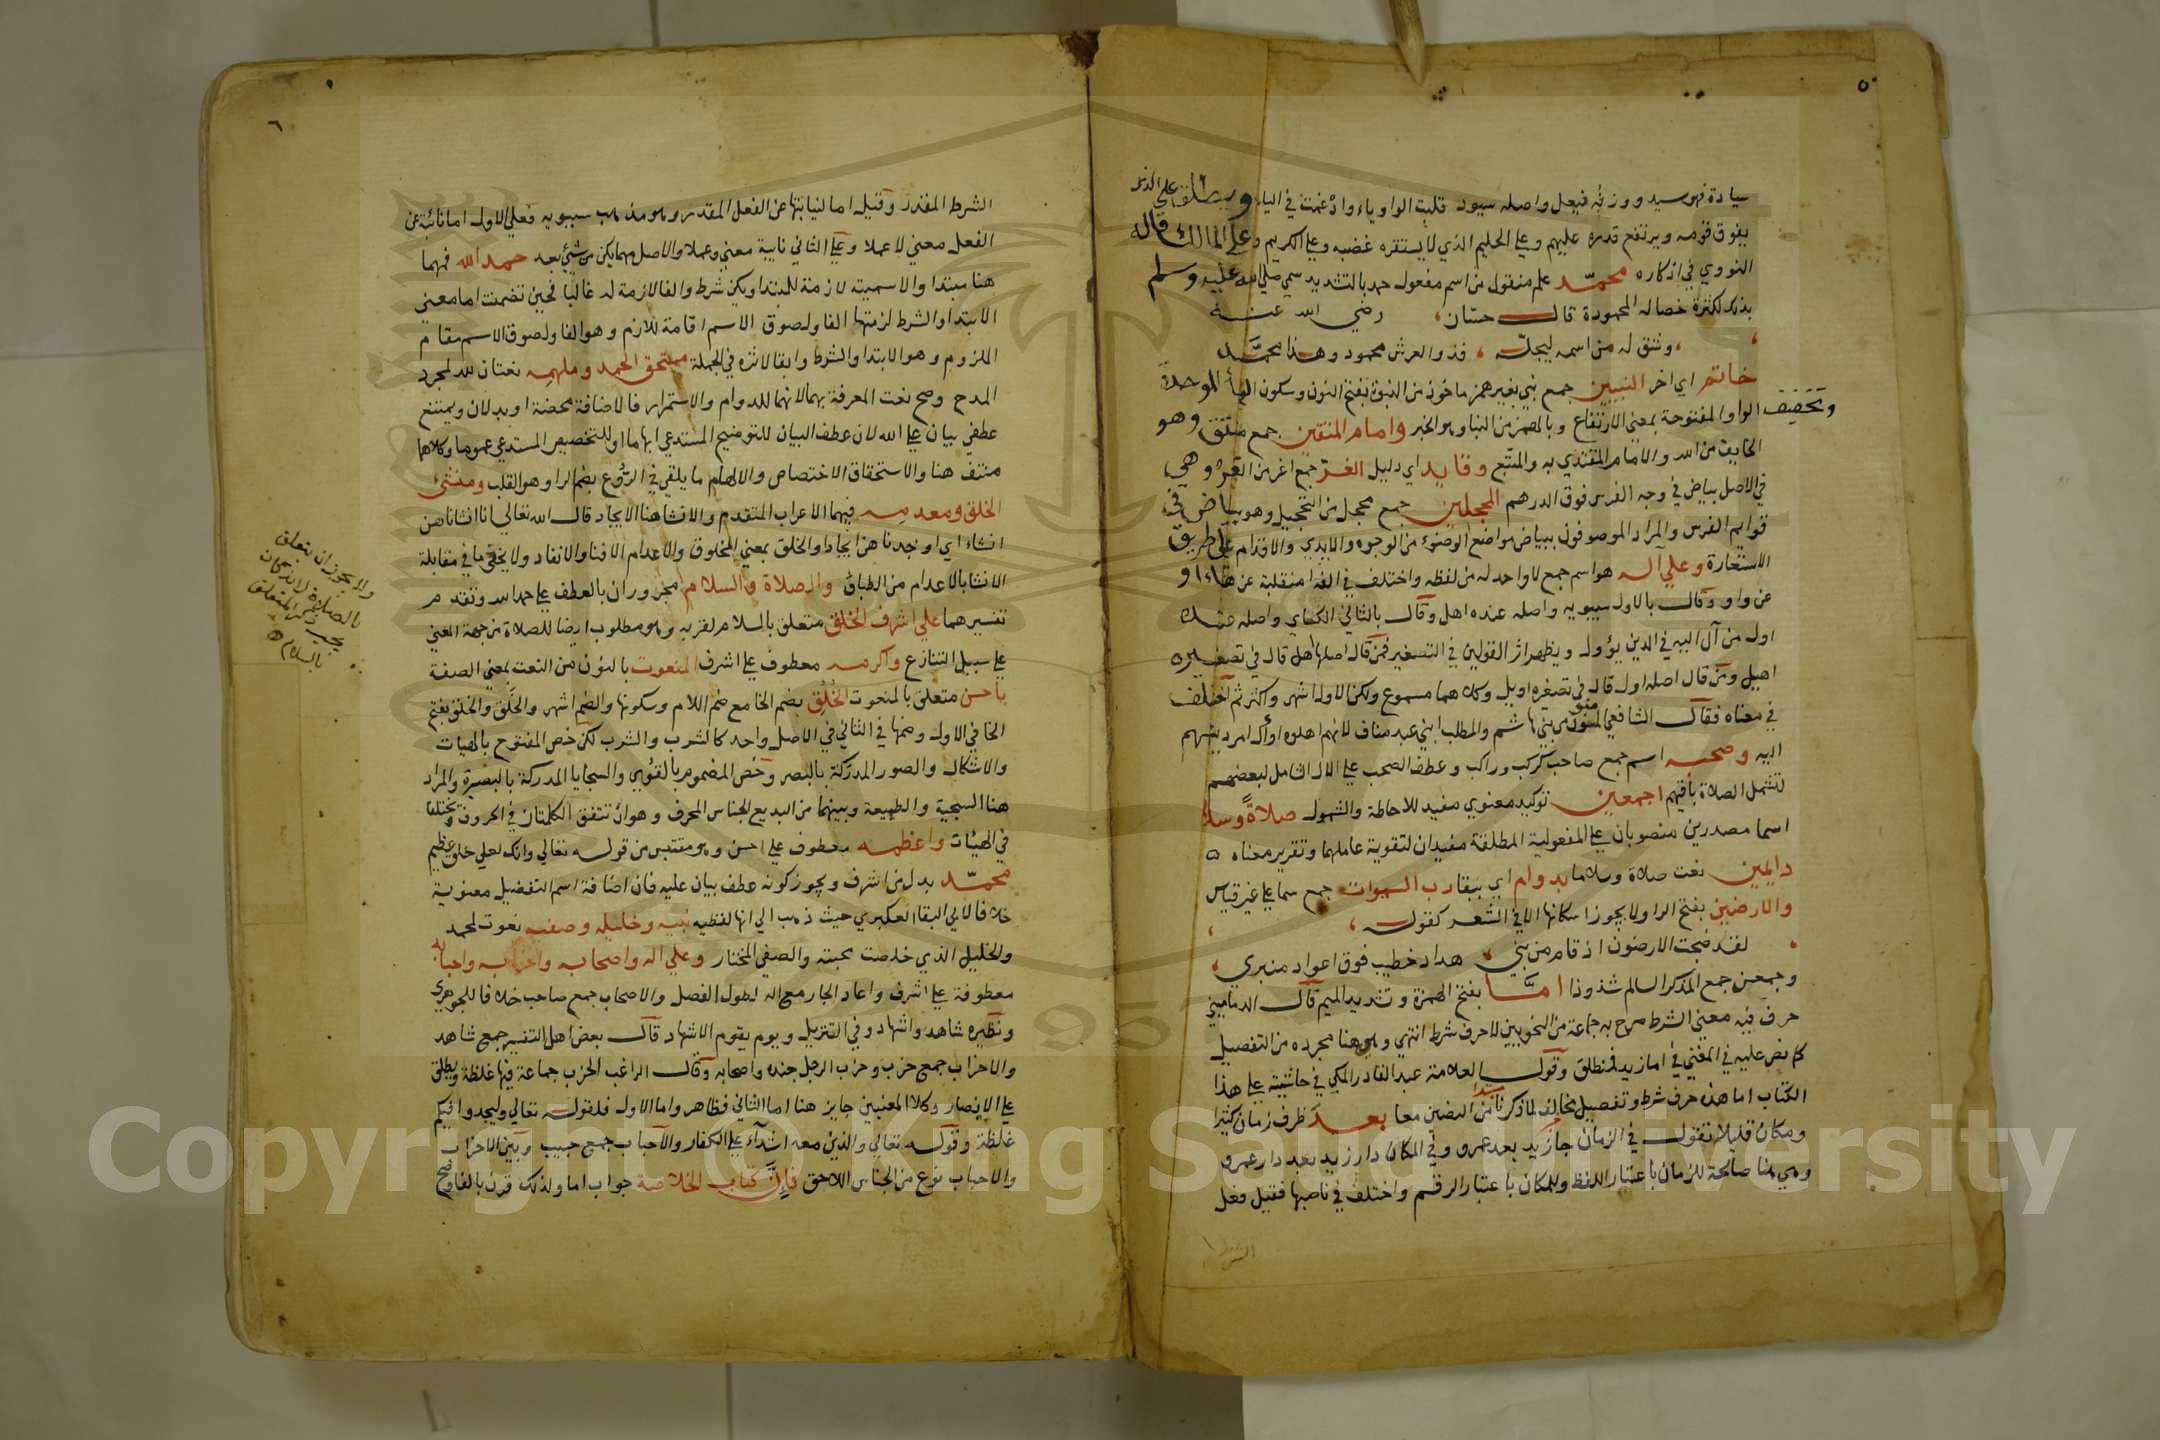 ٥
سيادة فهو سيد ووزنه فيعل واصله سيود قلبت الواو ياء وادغمت في الياء ويطلق علي الذي
يفوق قومه ويرتفع قدره عليهم وعلي الحليم الذي لا يستفزه غضبه وعلي الكريم وعلي المالك قاله
النووي في اذكاره محمد علم منقول من اسم مفعول حمد بالتشديد سمي صلي الله عليه وسلم
بذلك لكثرة خصاله المحمودة قال حسان رضي الله عنه
وشق له من اسمه ليجله فذو العرش محمود وهذا محمد
خاتم اي اخر النبيين جمع نبي بغير همز ماخوذ من النبوة بفتح النون وسكون الباء الموحدة
وتخفيف الواو المفتوحة بمعني الارتفاع وبالهمز من النبا وهو الخبر وامام المتقين جمع متق وهو
الخايف من الله والامام المقتدي به والمتبع وقايد اي دليل الغر جمع اغر من الغرة وهي
في الاصل بياض في وجه الفرس فوق الدرهم المحجلين جمع محجل من التحجيل وهو بياض في
قوايم الفرس والمراد الموصوفون ببياض مواضع الوضوء من الوجوه والايدي والاقدام علي طريق
الاستعارة وعلي آله هو اسم جمع لا واحد له من لفظه واختلف في الفه امنقلبة عن هاء او
عن واو وقال بالاول سيبويه واصله عنده اهل وقال بالثاني الكساي واصله عنده
اول من آل اليه في الدين يؤول ويظهر اثر القولين في التصغير فمن قال اصله اهل قال في تصغيره
اهيل ومن قال اصله اول قال في تصغيره اويل وكلاهما مسموع ولكن الاول اشهر واكثر ثم اختلف
في معناه فقال الشافعي المومنون من بني هاشم والمطلب ابني عبد مناف لانهم اهله او آل امر دينهم
اليه وصحبه اسم جمع صاحب كركب وراكب وعطف الصحب علي الال الشامل لبعضهم
لتشمل الصلاة باقيهم اجمعين توكيد معنوي مفيد للاحاطة والشمول صلاة وسلا
اسما مصدرين منصوبان علي المفعولية المطلقة مفيدان لتقوية عاملهما وتقرير معناه
دايمين نعت صلاة وسلاما بدوام اي ببقا رب السموات جمع سما علي غير قياس
والارضين بفتح الرا ولا يجوز اسكانها الا في الشعر كقوله
لقد ضجت الارضون اذ قام من بني هداد خطيب فوق اعواد منبري
وجمعن جمع المذكر السالم شذوذا اما بفتح الهمزة وتشديد الميم قال الدماميني
حرف فيه معني الشرط صرح به جماعة من النحويين لا حرف شرط انتهي وهو هنا مجرده من التفصيل
كما نص عليه في المغني في اما زيد فمنطلق وقول العلامة عبد القادر المكي في حاشيته علي هذا
الكتاب اما هذه حرف شرط وتفصيل مخالف لما ذكرنا من النصين معا بعد ظرف زمان كثيرا
ومكان قليلا تقول في الزمان جا زيد بعد عمرو وفي المكان دار زيد بعد دار عمرو
وهي هنا صالحة للزمان باعتبار اللفظ وللمكان باعتبار الرقم واختلف في ناصبها فقيل فعل
الشرط
٦
الشرط المقدر وقيل اما لنيابتها عن الفعل المقدر وهو مذهب سيبويه فعلي الاول اما نائبة عن
الفعل معني لا عملا وعلي الثاني نايبة معني وعملا والاصل مهما يكن من شيء بعد حمد الله فمهما
هنا مبتدا والاسمية لازمة للمبتدا ويكن شرط والفا لازمة له غالبا فحين تضمنت اما معني
الابتدا والشرط لزمتها الفا ولصوق الاسم اقامة للازم وهو الفا ولصوق الاسم مقام
الملزوم وهو الابتدا والشرط وابقا لاثره في الجملة مستحق الحمد وملهمه نعتان لله لمجرد
المدح وصح نعت المعرفة بهما لانهما للدوام والاستمرار فالاضافة محضة او بدلان ويمتنع
عطف بيان علي الله لان عطف البيان للتوضيح المستدعي ابهاما او للتخصيص المستدعي عموما وكلاهما
منتف هنا والاستحقاق الاختصاص والالهام ما يلقي في الروع بضم الرا وهو القلب ومنشئ
الخلق ومعدمه فيهما الاعراب المتقدم والانشا هنا الايجاد قال الله تعالي انا انشاناهن
انشاء اي اوجدناهن ايجادا والخلق بمعني المخلوق والاعدام الافنا والانفاد ولا يخفي ما في مقابلة
الانشا بالاعدام من الطباق والصلاة والسلام مجروران بالعطف علي حمد الله وتقدم
تفسيرهما علي اشرف الخلق متعلق بالسلام لقربه وهو مطلوب ايضا للصلاة من جهة المعني
علي سبيل التنازع واكرمه معطوف علي اشرف المنعوت بالنون من النعت بمعني الصفة
باحسن متعلق بالمنعوت الخلق بضم الخا مع ضم اللام وسكونها والضم اشهر والخلق والخلق بفتح
الخا في الاول وضمها في الثاني في الاصل واحد كالشرب والشرب لكن خص المفتوح بالهيات
والاشكال والصور المدركة بالبصر وخص المضموم بالقوي والسجايا المدركة بالبصيرة والمراد
هنا السجية والطبيعة وبينهما من البديع الجناس المحرف وهو ان تتفق الكلمتان في الحروف وتختلفا
في الهيئات واعظمه معطوف علي احسن وهو مقتبس من قوله تعالي وانك لعلي خلق عظيم
محمد بدل من اشرف ويجوز كونه عطف بيان عليه فان اضافة اسم التفضيل معنوية
خلافا لابي البقا العكبري حيث ذهب الي انها لفظيه نبيه وخليله وصفيه نعوت لمحمد
والخليل الذي خلصت محبته والصفي المختار وعلي اله واصحابه واحزابه واحبابه
معطوفة علي اشرف واعاد الجار مع اله لطول الفصل والاصحاب جمع صاحب خلافا للجوهري
ونظيره شاهد واشهاد وفي التنزيل ويوم يقوم الاشهاد قال بعض اهل التفسير جمع شاهد
والاحزاب جمع حزب وحزب الرجل جنده واصحابه وقال الراغب الحزب جماعة فيها غلظة ويطلق
علي الانصار وكلا المعنيين جايز هنا اما الثاني فظاهر واما الاول فلقوله تعالي وليجدوا فيكم
غلظة وقوله تعالي والذين معه اشداء علي الكفار والاحباب جمع حبيب وبين الاحزاب
والاحباب نوع من الجناس اللاحق فان كتاب الخلاصة جواب اما ولذلك قرن بالفا وضح
ولا يجوز ان يتعلق
بالصلاة لانه كان
يجب ذكر المتعلق
بالسلام
Copyright © King Saud University